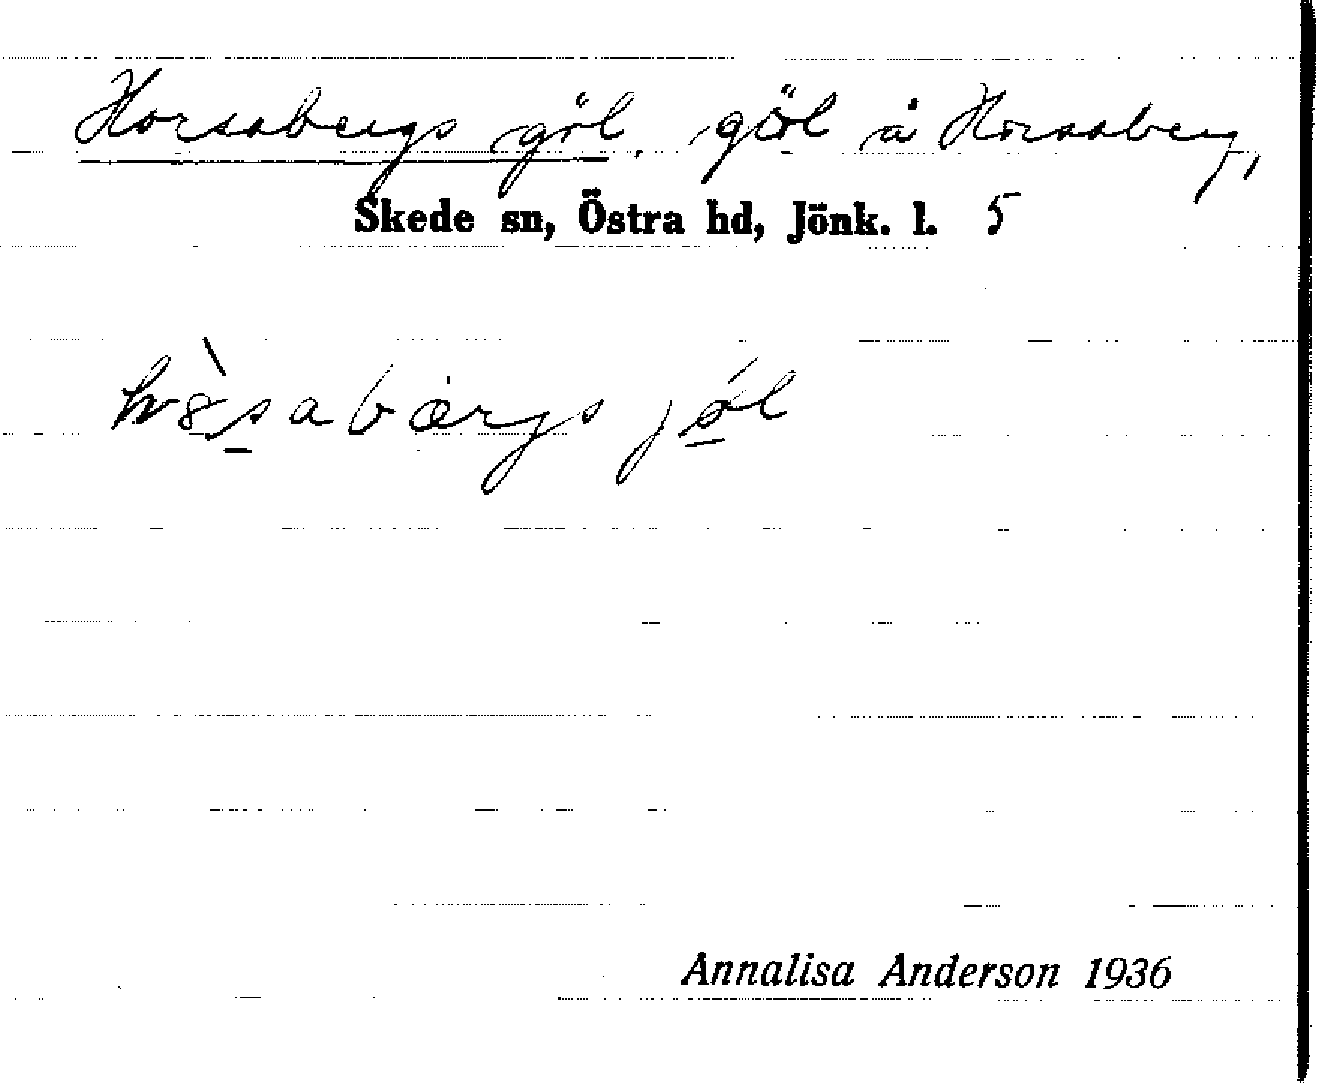 Horsabergs göl, göl å Horsaberg,
Skede sn, Östra hd, Jönk. l. 5
jöl
Annalisa Anderson 1936